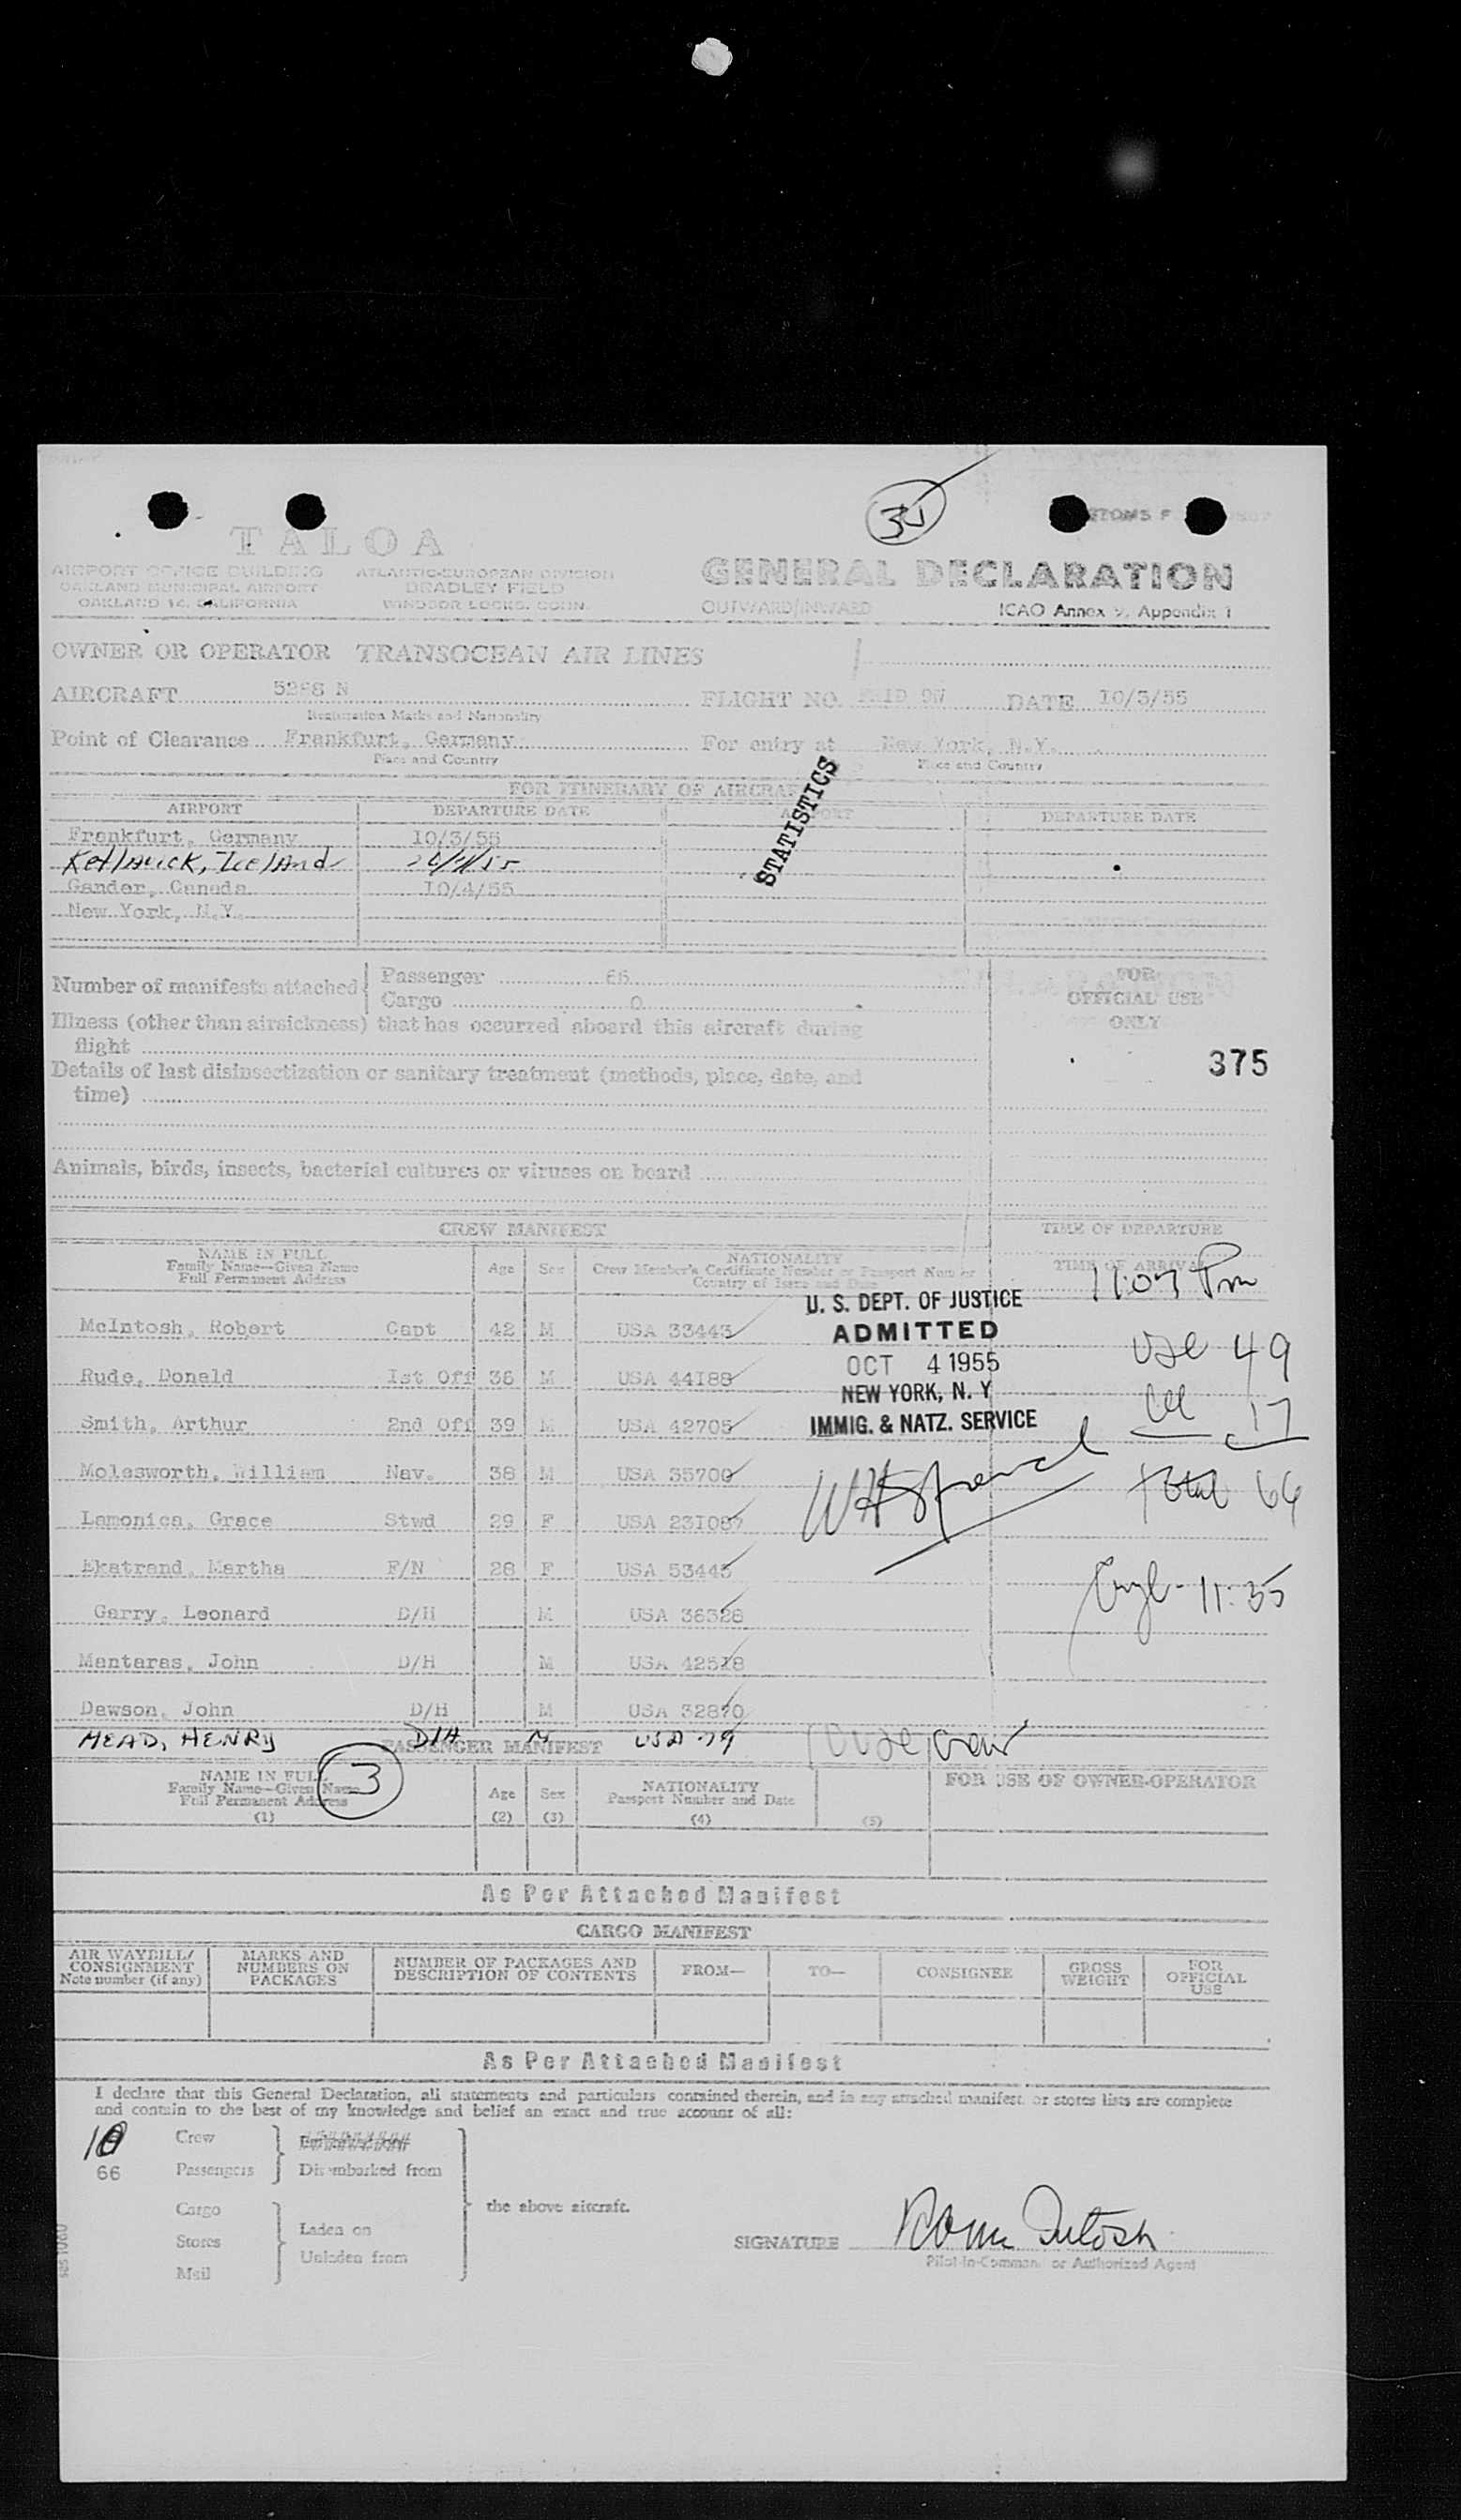 TALOA
AIRPORT OFFICE BUILDING
OAKLAND MUNICIPAL AIRPORT
OAKLAND 14, CALIFORNIA
ATLANTIC-EUROPEAN DIVISION
BRADLEY FIELD
WINDSOR LOCKS, CONN.
CUSTOMS F
GENERAL DECLARATION
OUTWARD/INWARD
ICAO Annex 9, Appendix 1
OWNER OR OPERATOR TRANSOCEAN AIR LINES
AIRCRAFT N FLIGHT NO. DATE 10/3/55
Registration Marks and Nationality
Point of Clearance Frankfurt, Germany For entry at New York, N.Y.
Place and Country Place and Country
FOR ITINERARY OF AIRCRAFT
AIRPORT DEPARTURE DATE AIRPORT DEPARTURE DATE
STATISTICS
Frankfurt, Germany 10/3/55
Keflavick, Iceland
Gander, Canada 10/4/55
New York, N.Y.
Number of manifests attached Passenger 66
Cargo 0
FOR
OFFICIAL USE
ONLY
Illness (other than airsickness) that has occurred aboard this aircraft during
flight
375
Details of last disinsectization or sanitary treatment (methods, place, date, and
time)
Animals, birds, insects, bacterial cultures or viruses on board
CREW MANIFEST TIME OF DEPARTURE
NAME IN FULL
Family Name—Given Name
Full Permanent Address
Age Sex
NATIONALITY
Crew Member's Certificate Number or Passport Number
Country of Issue and Date
TIME OF ARRIVAL
11:07 Pm
U. S. DEPT. OF JUSTICE
ADMITTED
OCT 4 1955
NEW YORK, N. Y
IMMIG. & NATZ. SERVICE
McIntosh, Robert Capt 42 M USA 33443
Rude, Donald 1st Off 36 M USA 44188
Smith, Arthur 2nd Off 39 M USA 42705
Molesworth, William Nav. 38 M USA 35700
Lamonica, Grace Stwd 29 F USA 231087
Ekatrand, Martha F/N 28 F USA 53443
Garry, Leonard D/H M USA 36328
Mantaras, John D/H M USA 42518
Dawson, John D/H M USA 32870
HEAD, HENRY D/H M USA 79
usc 49
17
total 66
11:35
crew
PASSENGER MANIFEST
3
NAME IN FULL
Family Name—Given Name
Full Permanent Address
(1)
Age
(2)
Sex
(3)
NATIONALITY
Passport Number and Date
(4)
(5)
FOR USE OF OWNER-OPERATOR
As Per Attached Manifest
CARGO MANIFEST
AIR WAYBILL/
CONSIGNMENT
Note number (if any)
MARKS AND
NUMBERS ON
PACKAGES
NUMBER OF PACKAGES AND
DESCRIPTION OF CONTENTS
FROM—
TO—
CONSIGNEE
GROSS
WEIGHT
FOR
OFFICIAL
USE
As Per Attached Manifest
I declare that this General Declaration, all statements and particulars contained therein, and in any attached manifest or stores lists are complete
and contain to the best of my knowledge and belief an exact and true account of all:
10 Crew
66 Passengers Disembarked from
the above aircraft.
Cargo
Stores Laden on
Mail Unladen from
SIGNATURE
Pilot-in-Command or Authorized Agent